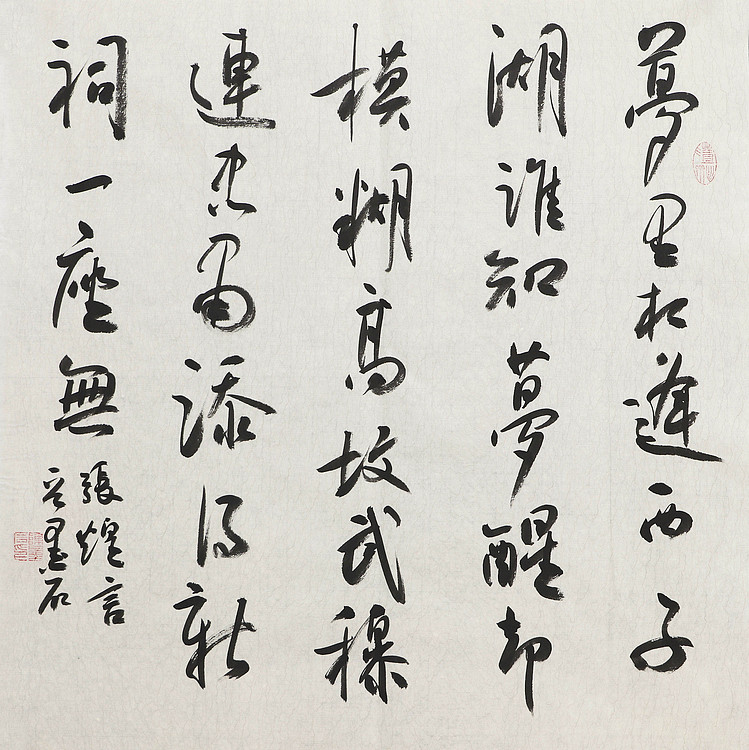 夢里相逢西子
湖誰知夢醒却
模糊高坟武穆
連忠肅添得新
祠一座無
張煌言
墨石